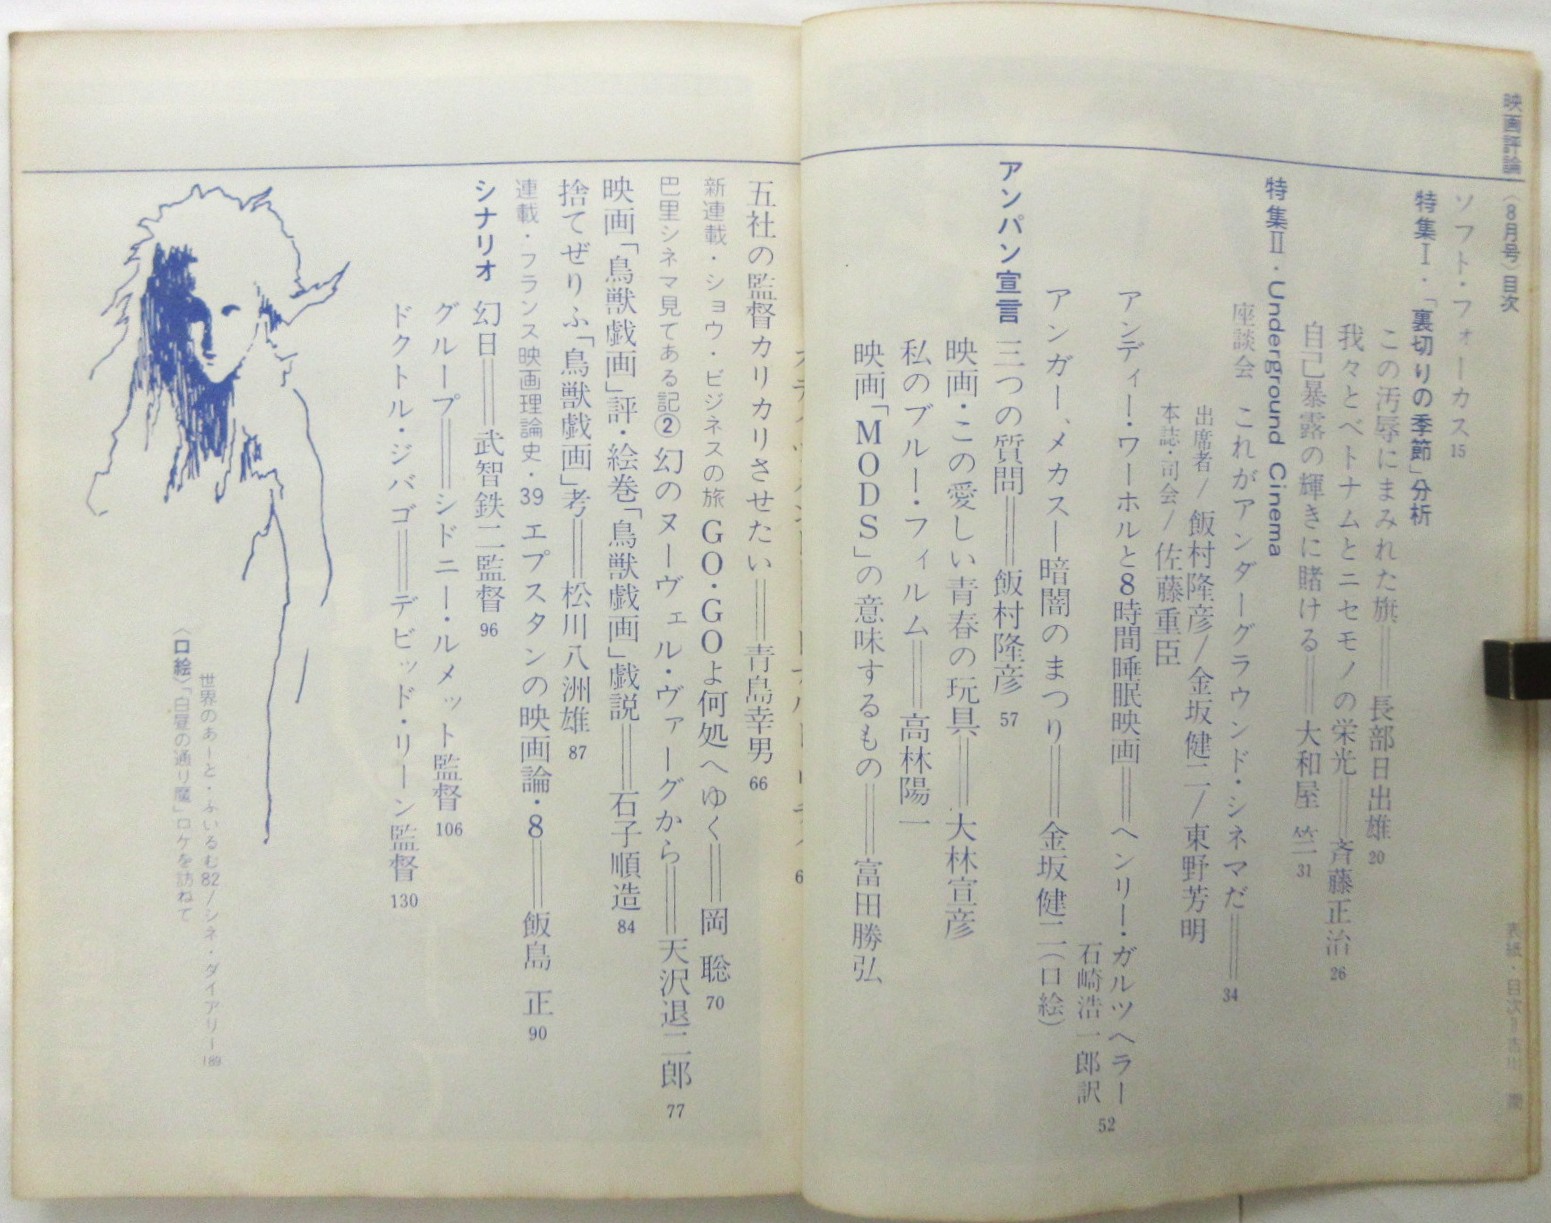 映画評論〈8月号〉目次
表紙・目次＝吉川
ソフト・フォーカス15
特集Ⅰ・「裏切りの季節」分析
この汚辱にまみれた旗＝長部日出雄20
我々とベトナムとニセモノの栄光＝斉藤正治26
自己暴露の輝きに賭ける＝大和屋 竺31
特集Ⅱ・Underground Cinema
座談会 これがアンダーグラウンド・シネマだ＝34
出席者/飯村隆彦/金坂健二/東野芳明
本誌・司会/佐藤重臣
アンディー・ワーホルと8時間睡眠映画＝ヘンリー・ガルツヘラー
石崎浩一郎訳 52
アンガー、メカス―暗闇のまつり＝金坂健二（口絵）
アンパン宣言 三つの質問＝飯村隆彦 57
映画・この愛しい青春の玩具＝大林宣彦
私のブルー・フィルム＝高林陽一
映画「MODS」の意味するもの＝富田勝弘
五社の監督カリカリさせたい＝青島幸男66
新連載・ショウ・ビジネスの旅 GO・GOよ何処へゆく＝岡 聡70
巴里シネマ見てある記② 幻のヌーヴェル・ヴァーグから＝天沢退二郎77
映画「鳥獣戯画」評・絵巻「鳥獣戯画」戯説＝石子順造84
捨てぜりふ「鳥獣戯画」考＝松川八洲雄87
連載・フランス映画理論史・39 エプスタンの映画論・8＝飯島 正90
シナリオ 幻日＝武智鉄二監督96
グループ＝シドニー・ルメット監督106
ドクトル・ジバゴ＝デビッド・リーン監督130
世界のあーと・ふいるむ82/シネ・ダイアリー189
〈口絵〉「白昼の通り魔」ロケを訪ねて